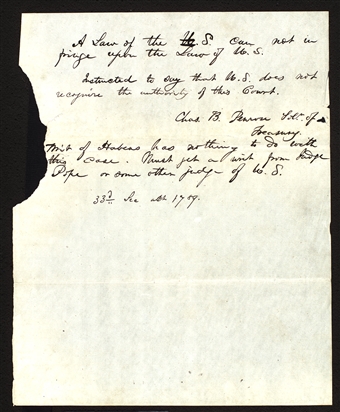 A Law of the U.S. can not in
fringe upon the Law of U.S.
Instructed to say that U.S. does not
recognise the authority of this Court.
Chas. B. Penrose Solr. of
Treasury.
Writ of Habeas has nothing to do with
this case. Must get a writ from Judge
Pope or some other judge of U.S.
33d Sec act 1789.